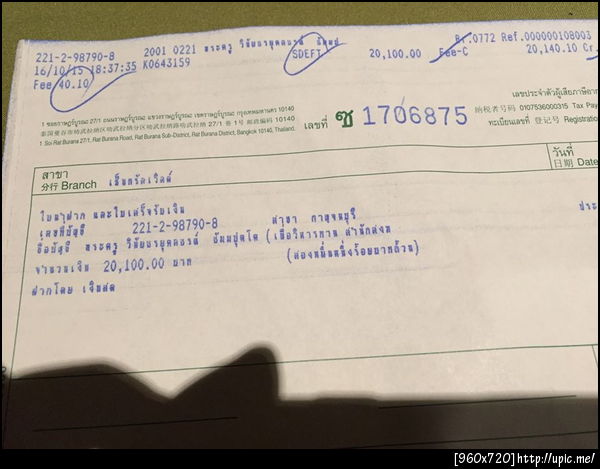 Br.0772 Ref.000000108003
221-2-98790-8 2001 0221 พระครู วินัยธรยุคลธรณ์ ธัมมป SDEFT 20,100.00 Fee-C 20,140.10 Cr.
16/10/15 18:37:35 K0643159
Fee 40.10
1 ซอยราษฎร์บูรณะ 27/1 ถนนราษฎร์บูรณะ แขวงราษฎร์บูรณะ เขตราษฎร์บูรณะ กรุงเทพมหานคร 10140
27/1 巷 1号 邮政编码 10140
1 Soi Rat Burana 27/1, Rat Burana Road, Rat Burana Sub-District, Rat Burana District, Bangkok 10140, Thailand.
เลขที่ ซ 1706875
เลขประจำตัวผู้เสียภาษีอาก
纳税者号码 0107536000315 Tax Pay
ทะเบียนเลขที่ 登记号 Registratio
สาขา
分行 Branch เซ็นทรัลเวิลด์
วันที่
日期 Date
ใบนำฝาก และใบเสร็จรับเงิน
เลขที่บัญชี 221-2-98790-8 สาขา กาญจนบุรี ประ
ชื่อบัญชี พระครู วินัยธรยุคลธรณ์ ธัมมปุตโต (เพื่อวิหารทาน สำนักสงฆ
จำนวนเงิน 20,100.00 บาท (สองหมื่นหนึ่งร้อยบาทถ้วน)
ฝากโดย เงินสด
[960x720]http://upic.me/